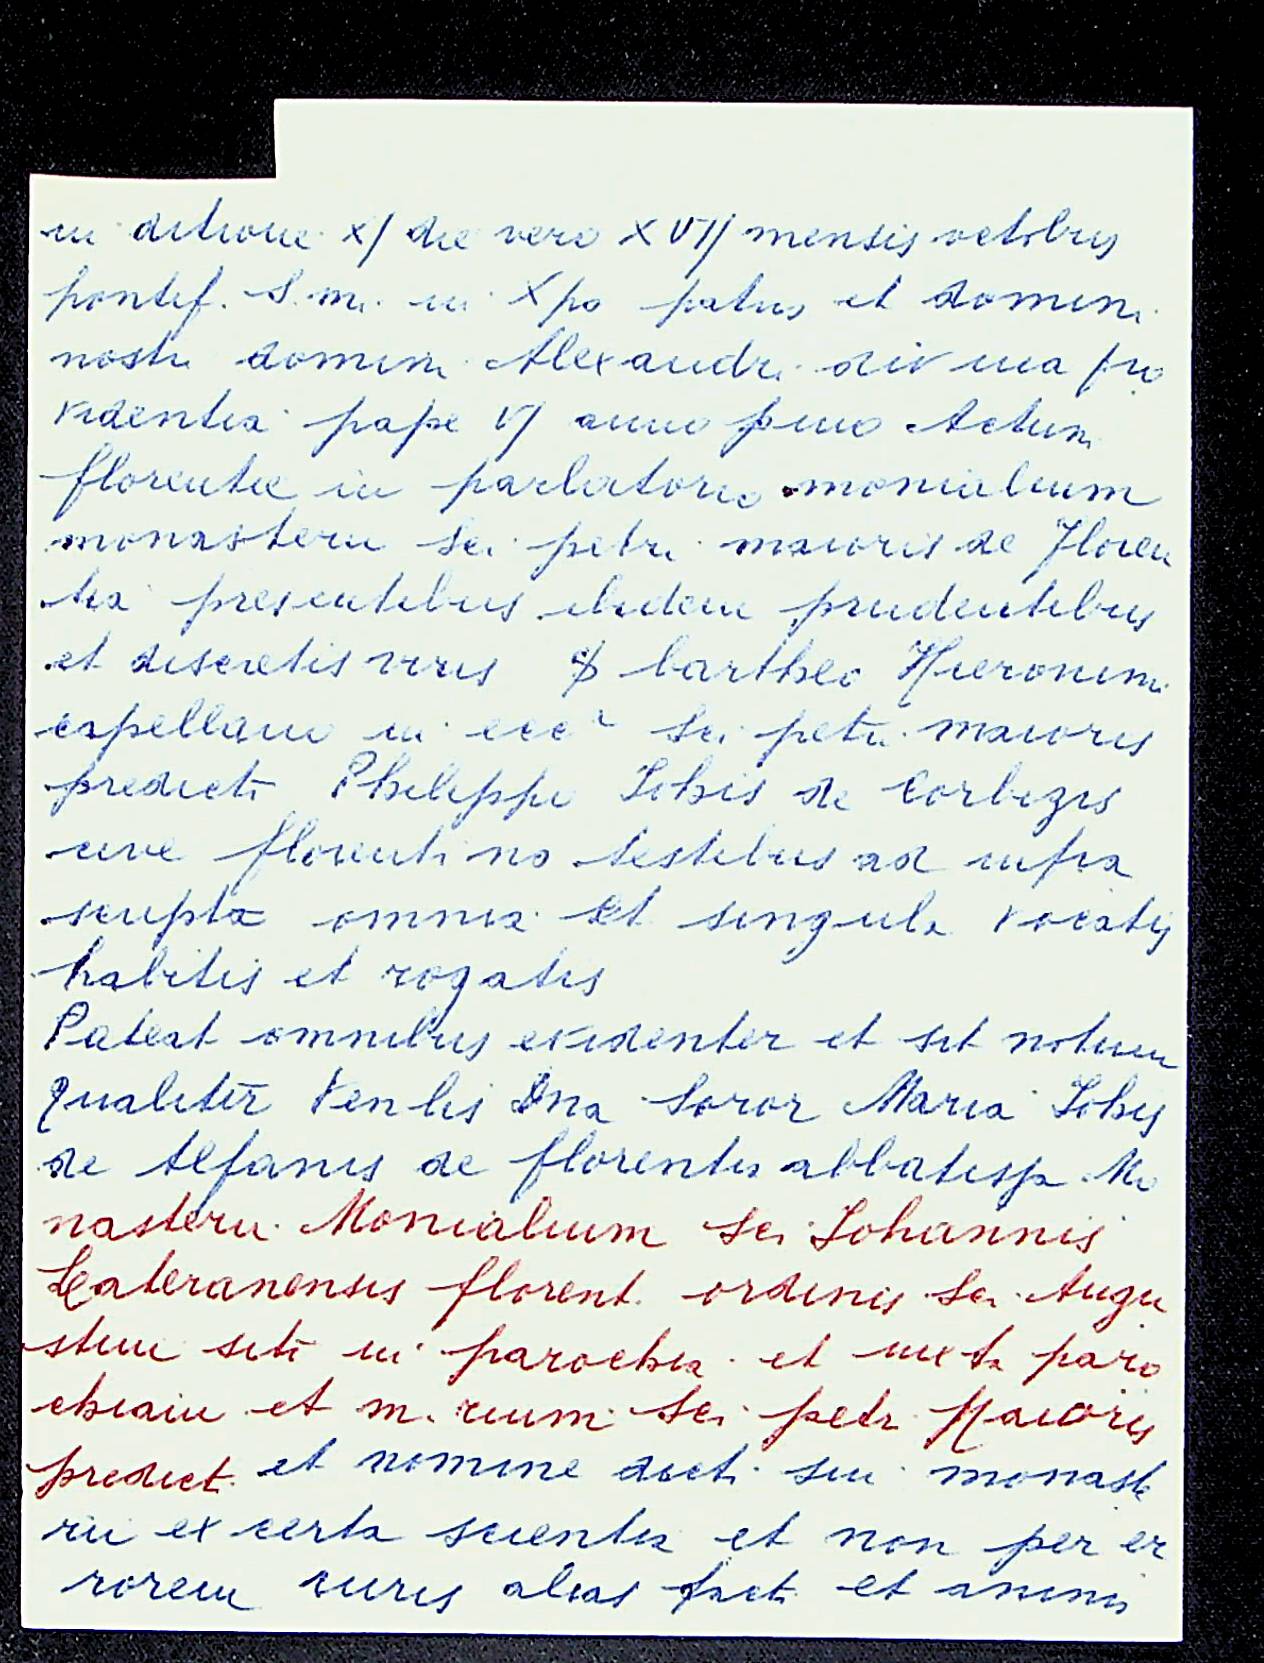 in ditione XJ die vero XVIJ mensis octobris
pontif. S.mi. in Xpo patris et domini
nostri domini Alexandri divina pro
videntia pape VJ anno primo Actum
florentie in parlatorio monialium
monasterii Sci petri maioris de Floren
tia presentibus ibidem prudentibus
et discretis viris S bartheo Hieronimi
capellano in ecca Sci petri maioris
predicti Philippo Johis de Corbizis
cive florentino testibus ad infra
scripta omnia et singula vocatis
habitis et rogatis
Pateat omnibus evidenter et sit notum
qualiter Venlis Dna Soror Maria Johis
de Alfanis de florentia abbatissa Mo
nasterii Monialium Sci Johannis
Lateranensis florent. ordinis Sci Augu
stini siti in parochia et iuxta paro
chiam et m.rium Sci petri Maioris
predict. et nomine dicti sui monaste
rii ex certa scientia et non per er
rorem iuris alias facti et animi